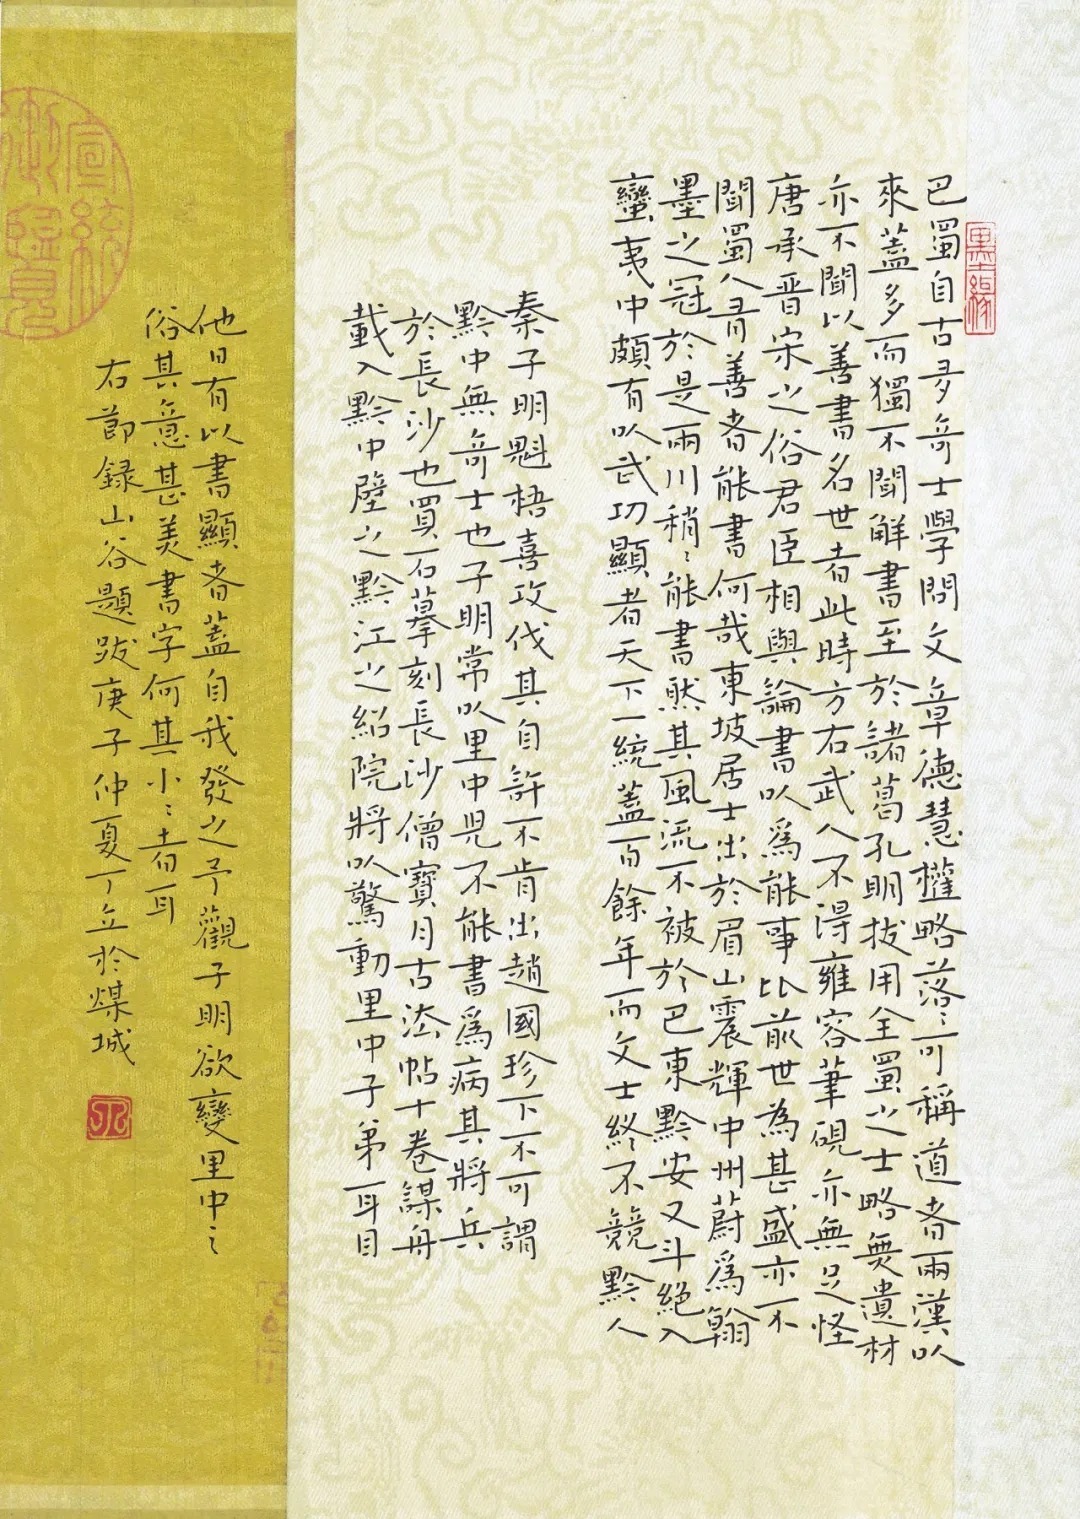 墨緣
巴蜀自古多奇士學問文章德慧權略落〻可稱道者兩漢以
來蓋多而獨不聞解書至於諸葛孔明拔用全蜀之士略無遺材
亦不聞以善書名世者此時方右武人不得雍容筆硯亦無足怪
唐承晉宋之俗君臣相與論書以爲能事比前世為甚盛亦不
聞蜀人有善者能書何哉東坡居士出於眉山震輝中州蔚爲翰
墨之冠於是兩川稍〻能書然其風流不被於巴東黔安又斗絕入
蠻夷中頗有以武功顯者天下一統蓋百餘年而文士終不競黔人
秦子明魁梧喜攻伐其自許不肯出趙國珍下不可謂
黔中無奇士也子明常以里中兒不能書爲病其將兵
於長沙也買石摹刻長沙僧寶月古法帖十卷謀舟
載入黔中壁之黔江之紹院將以驚動里中子弟耳目
他日有以書顯者蓋自我發之予觀子明欲變里中之
俗其意甚美書字何其小〻者耳
右節錄山谷題跋庚子仲夏丁立於煤城
宣統
御覽